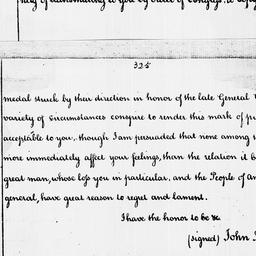 of transmitting to you by order of Congress. a
325
medal struck by their direction in honor of the late General
variety of circumstances conspire to render this mark of
acceptable to you, though I am persuaded that none among
more immediately affect your feelings, than the relation it
great man, whose loss you in particular, and the People of
general, have great reason to regret and lament.
I have the honor to be &c
(signed) John